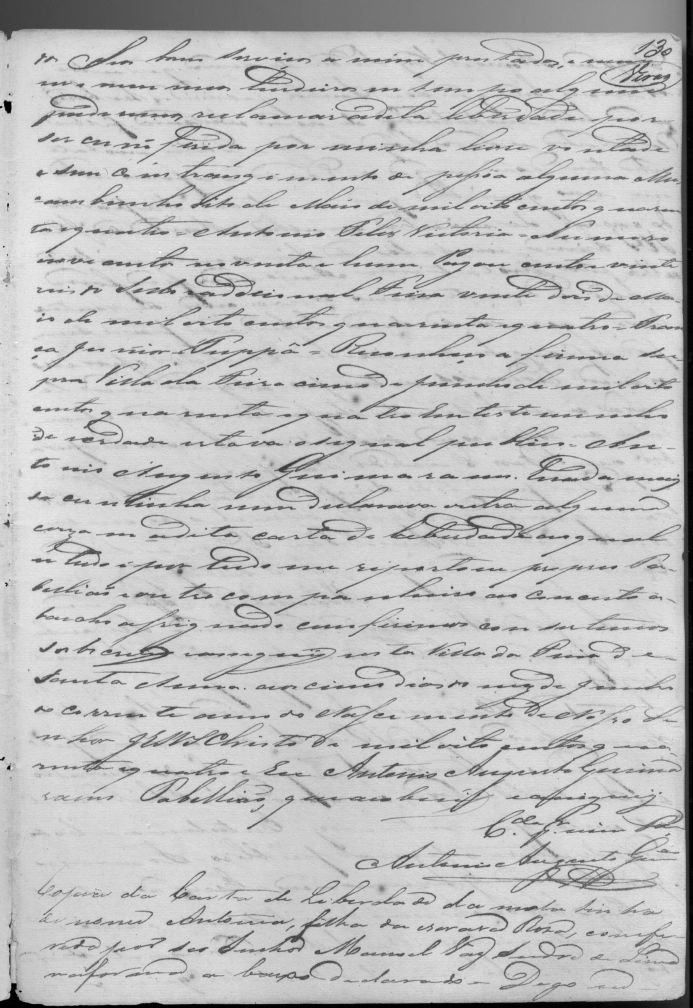 130
os Seus bons serviços a mim prestados, e nem
eu e nem meus herdeiros em tempo algum
puderemos reclamar a dita liberdade por
ser cunferida por minha livre vontade
e sem constrangimento de pessôa alguma
de Maio de mil oito centos quaren
ta e quatro = Antonio Felix Victoria = Numero
nove centos noventa e hum Pagou cento e vinte
reis do Sello addicional. Feira vinte dois de Ma
io de mil oito centos quarenta e quatro = Fran
ça Junior = Tuppá = Reconheço a firma su
pra Villa da Feira cinco de Junho de mil oito
centos quarenta e quatro Em testemunho
de verdade estava o signal publico = An
tonio Augusto Guimaraens. E nada mais
se cuntinha nem declarava outra alguma
couza em a dita carta de liberdade a qual
em tudo e por tudo me reporto em propio Ta-
bellião e outro companheiro ao concerto a-
baicho assignado cunferimos concertamos
sobscrevi e assignei nesta Villa da Feira de
Santa Anna aos cinco dias do mez de Junho
do corrente anno do Nascimento de Nosso Se
nhor JESUS Christo de mil oito centos qua
renta e quatro e Eu Antonio Augusto Guima
raens Tabellião, que sobscrevi e assignei
Antonio Augusto Guim
Copia da Carta de Liberdade da mulatinha
de nome Antonia, filha da escrava Roza, confe
rida por seo Senhor Manoel Vaz
na forma a baixo declarado = Digo eu